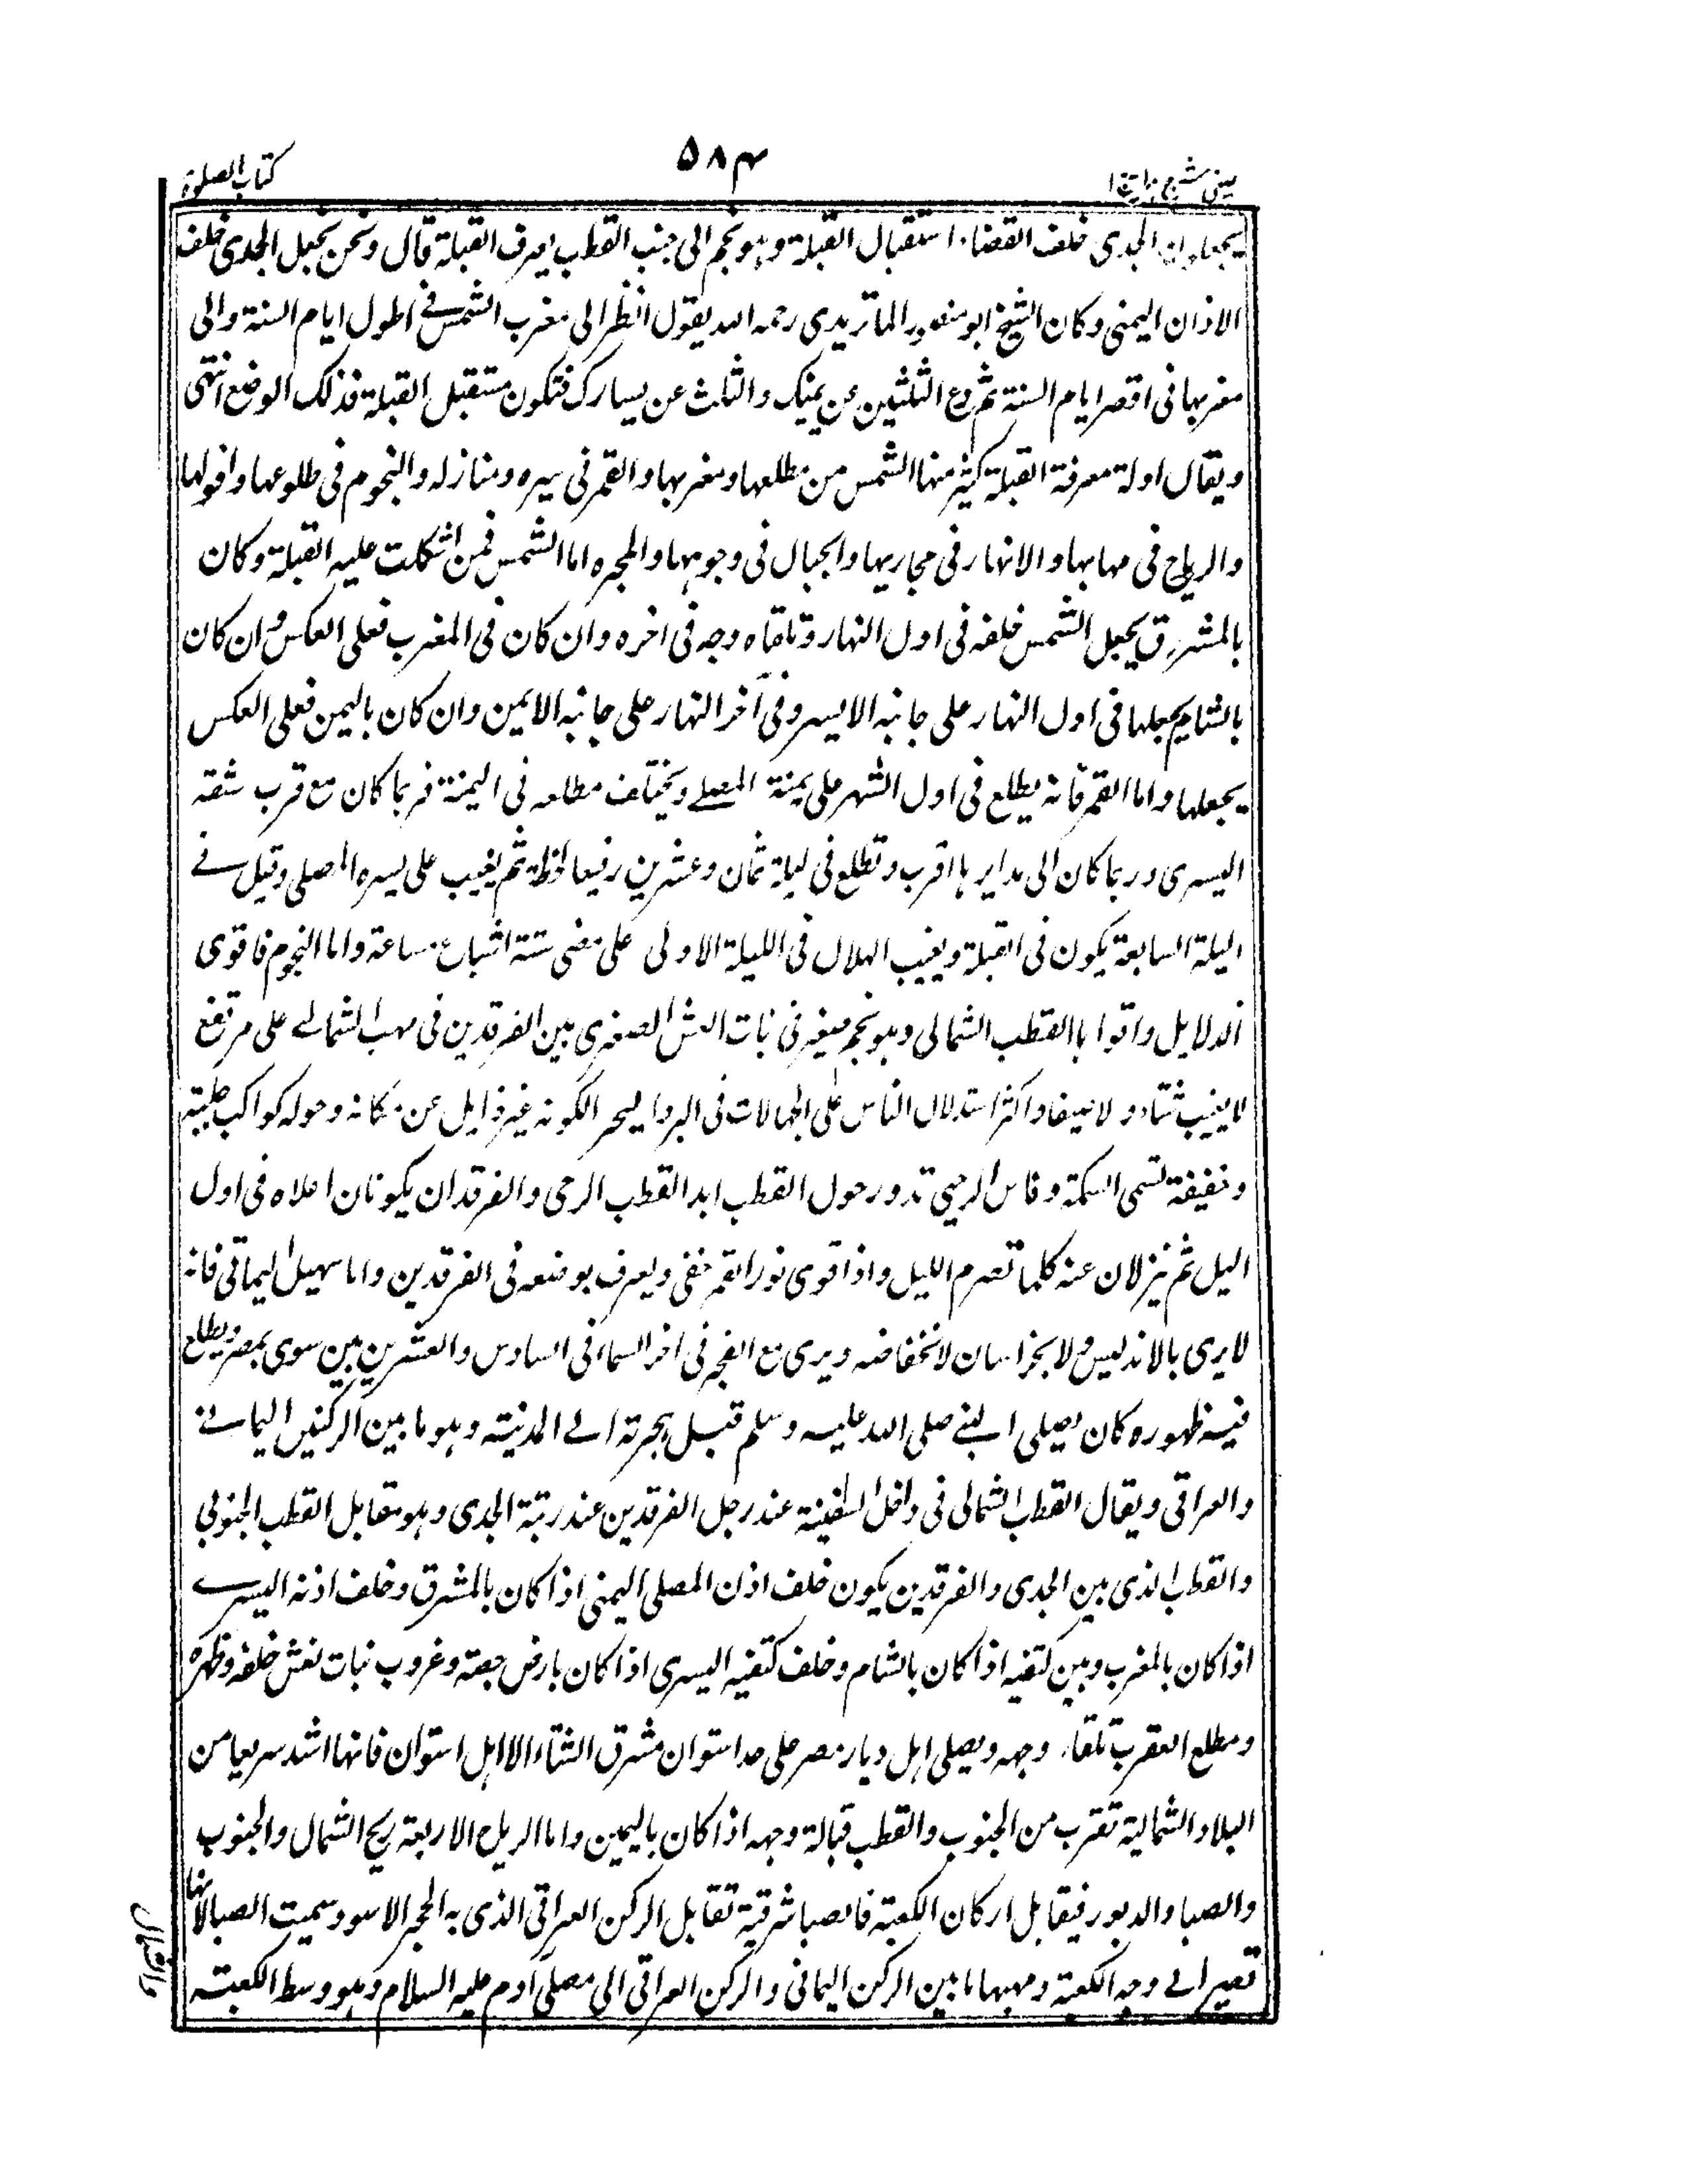 عینی شرح ہدایہ ج ۱
۵۸۴
کتاب الصلوۃ
یجعلون الجدی خلف القضاء استقبال القبلة وہو نجم الی جنب القطب یعرف القبلة قال ونحن نجعل الجدی خلف
الاذان الیمنی وکان الشیخ ابو منصور الماتریدی رحمہ اللہ یقول انظر الی مغرب الشمس فی اطول ایام السنة والی
مغربہا فی اقصر ایام السنة ثم دع الثلثین عن یمینک والثلث عن یسارک فتکون مستقبل القبلة فذلک الوضع انتہی
ویقال اولة معرفة القبلة کثیر منہا الشمس من مطلعہا ومغربہا والقمر فی سیرہ ومنازلہ والنجوم فی طلوعہا وافولہا
والریاح فی مہابہا والانہار فی مجاریہا والجبال فی وجوہہا والمجرہ اما الشمس فمن اشکلت علیہ القبلة وکان
بالمشرق یجعل الشمس خلفہ فی اول النہار وتلقاہ وجہ فی اخرہ وان کان فی المغرب فعلی العکس وان کان
بالشام یجعلہا فی اول النہار علی جانبہ الایسر وفی آخر النہار علی جانبہ الایمن وان کان بالیمن فعلی العکس
یجعلہا واما القمر فانہ یطلع فی اول الشہر علی یمنة المصلے ویختلف مطلعہ فی الیمنة فربما کان مع قرب شقہ
الیسری وربما کان الی مدایرہا اقرب وتطلع فی لیلة ثمان وعشرین رفیعا لحظة ثم یغیب علی یسرہ المصلی وقیل فے
الیلة السابعة یکون فی القبلة ویغیب الہلال فی اللیلة الاولی علی مضی ستة اشباع ساعة واما النجوم فاقوی
الدلایل واقوا ہا القطب الشمالی وہو نجم صغیر فی بنات النعش الصغری بین الفرقدین فی مہب الشمالے علی مرتفع
لا یغیب شتاء ولا صیفا واکثر استدلال الناس علی الجہالات فی البر والبحر لکونہ غیر زایل عن مکانہ وحولہ کواکب جلیتہ
وخفیفة تسمی السمکة وفاس الرحیی تدور حول القطب ابد القطب الرحی والفرقدان یکونان اعلاہ فی اول
الیل ثم ینزلان عنہ کلما تصرم اللیل واذا قوی نور القمر خفی ویعرف بوضعہ فی الفرقدین واما سہیل الیماتی فانہ
لا یری بالاندلیس ولا بخراسان لانخفاضہ ویری مع الفجر فی اخر السماء فی السادس والعشرین بین سوی بمصر ویطلع
فیہ ظہورہ کان یصلی النبے صلی اللہ علیہ وسلم قبل ہجرتہ الے المدینتہ وہو ما بین الرکنین الیمانے
والعراقی ویقال القطب الشمالی فی داخل السفینة عند رجل الفرقدین عند رتبة الجدی وہو مقابل القطب الجنوبی
والقطب الذی بین الجدی والفرقدین یکون خلف اذن المصلی الیمنی اذا کان بالمشرق وخلف اذنہ الیسرے
اذا کان بالمغرب وبین کتفیہ اذا کان بالشام وخلف کتفیہ الیسری اذا کان بارض جعتہ وغروب بنات نعش خلفہ وظہرہ
ومطلع العقرب تلقاء وجہہ ویصلی اہل دیار مصر علی حد استوان مشرق الشتاء الا اہل استوان فانہا اشد سریعا من
البلاد الشمالیة تقرب من الجنوب والقطب قبالة وجہہ اذا کان بالیمین واما الریاح الاربعة ریح الشمال والجنوب
والصبا والدبور فیقابل ارکان الکعبتہ فالصبا شرقیة تقابل الرکن العراقی الذی بہ الحجر الاسود وسمیت الصبا لانہا
تصیر الے وجہ الکعبة ومہبہا ما بین الرکن الیمانی والرکن العراقی الی مصلی آدم علیہ السلام وہو وسط الکعبتہ
والشمال